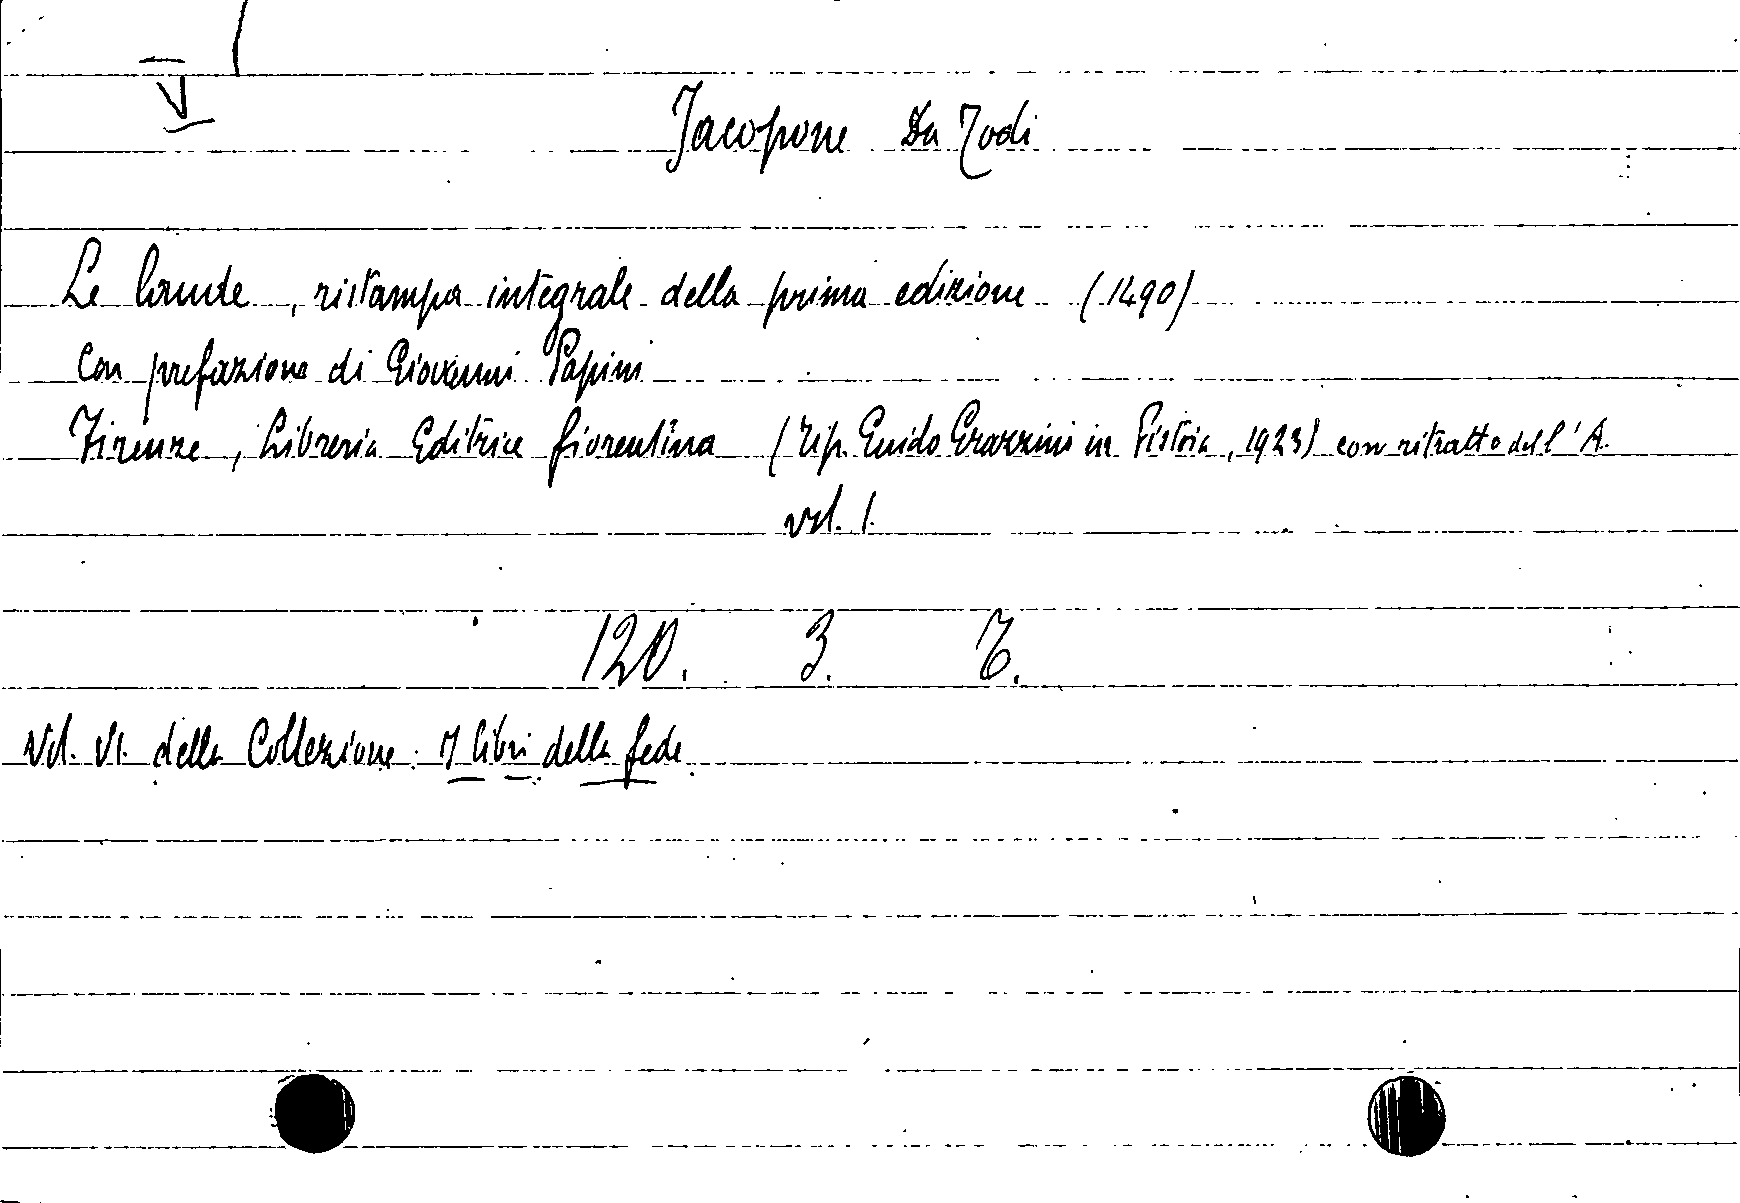 V
Jacopone Da Todi
Le Laude, ristampa integrale della prima edizione (1490)
Con prefazione di Giovanni Papini
Firenze, Libreria Editrice fiorentina (Tip. Guido Grazzini in Pistoia, 1923) con ritratto dell'A.
vol. 1.
120. 3. 7.
Vol. VI. della Collezione: I libri della fede.